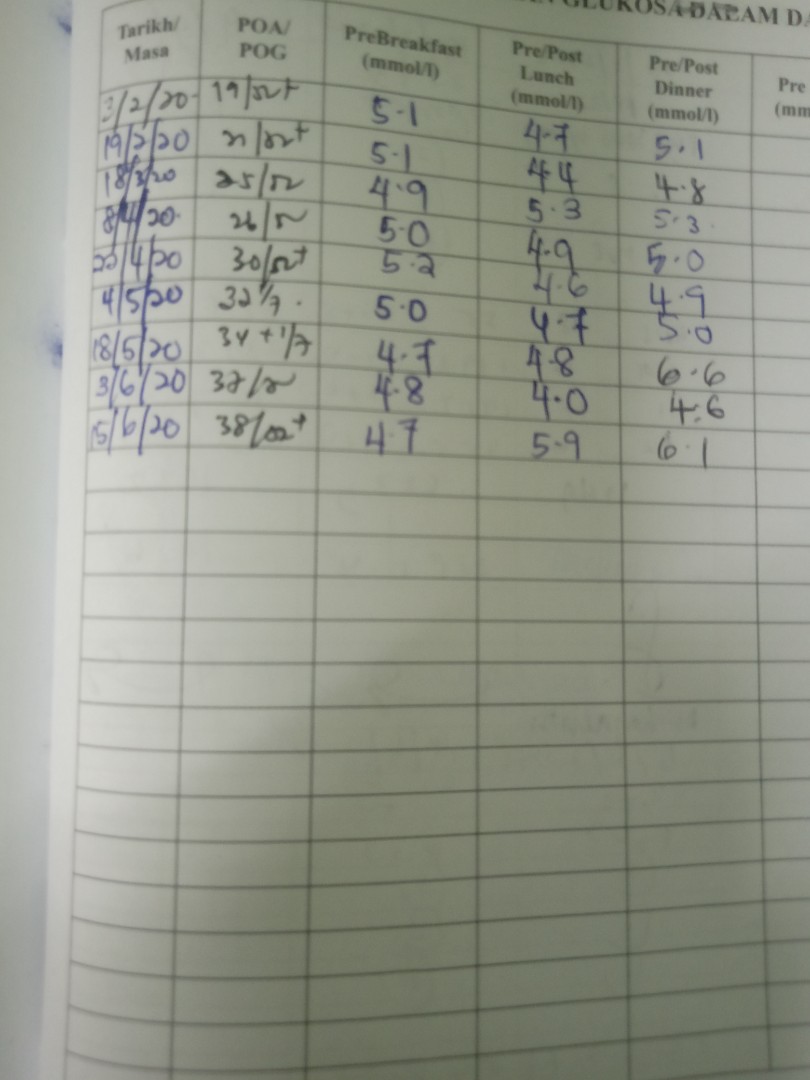 GLUKOSA DALAM DA
Tarikh/ Masa POA/ POG PreBreakfast (mmol/l) Pre/Post Lunch (mmol/l) Pre/Post Dinner (mmol/l) Pre (mm
3/2/20 5.1 4.7 5.1
19/2/20 5.1 4.4 4.8
18/3/20 4.9 5.3 5.3
8/4/20 5.0 4.9 5.0
22/4/20 5.2 4.6 4.9
4/5/20 5.0 4.7 5.0
18/5/20 34+1/7 4.7 4.8 6.6
3/6/20 4.8 4.0 4.6
15/6/20 4.7 5.9 6.1